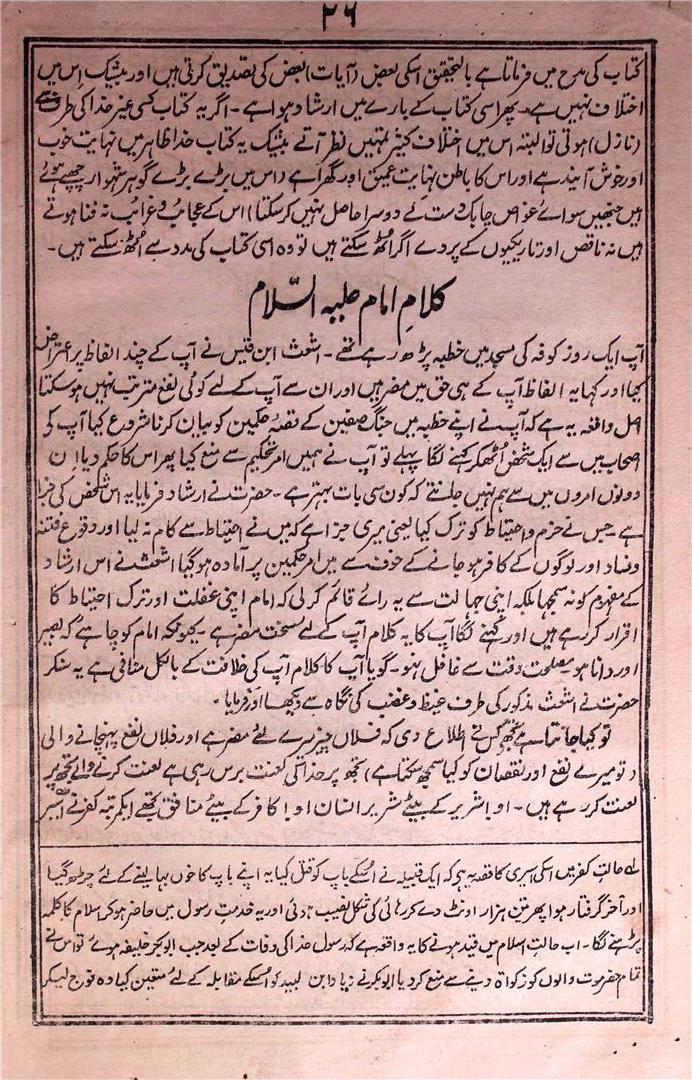 ۲۶
کتاب کی مدح میں فرماتا ہے بالتحقیق اسکی بعض (آیات) بعض کی تصدیق کرتی ہیں اور بیشک اس میں
اختلاف نہیں ہے۔ پھر اسی کتاب کے بارے میں ارشاد ہوا ہے۔ اگر یہ کتاب کسی غیر خدا کی طرف سے
(نازل) ہوتی تو البتہ اس میں اختلاف کثیر تمہیں نظر آتے بیشک یہ کتاب خدا ظاہر میں نہایت خوب
اور خوش آیند ہے اور اس کا باطن نہایت عمیق اور گہرا ہے (اس میں بڑے بڑے گوہر شہوار چھپے ہوئے
ہیں جنھیں سوائے غواص چابک دست کے دوسرا حاصل نہیں کرسکتا) اس کے عجائب و غرائب نہ فنا ہوتے
ہیں نہ ناقص اور تاریکیوں کے پردے اگر اٹھ سکتے ہیں تو وہ اسی کتاب کی مدد سے اٹھ سکتے ہیں۔
کلامِ امام علیہ السّلام
آپ ایک روز کوفہ کی مسجد میں خطبہ پڑھ رہے تھے۔ اشعث ابن قیس نے آپ کے چند الفاظ پر اعتراض
کیا اور کہا یہ الفاظ آپ کے ہی حق میں مضر ہیں اور ان سے آپ کے لئے کوئی نفع مترتب نہیں ہوسکتا
اصل واقعہ یہ ہے کہ آپ نے اپنے خطبہ میں جنگ صفین کے قصۂ حکمین کو بیان کرنا شروع کیا آپ کی
اصحاب میں سے ایک شخص اٹھکر کہنے لگا پہلے تو آپ نے ہمیں امر تحکیم سے منع کیا پھر اس کا حکم دیا ان
دونوں امروں میں سے ہم نہیں جانتے کہ کون سی بات بہتر ہے۔ حضرت نے ارشاد فرمایا یہ اس شخص کی جزا
ہے۔ جس نے حزم و احتیاط کو ترک کیا یعنی میری جزا ہے کہ میں نے احتیاط سے کام نہ لیا اور وقوع فتنہ
وفساد اور لوگوں کے کافر ہو جانے کے خوف سے میں امر حکمین پر آمادہ ہوگیا اشعث نے اس ارشاد
کے مفہوم کو نہ سمجھا بلکہ اپنی جہالت سے یہ رائے قائم کرلی کہ امام اپنی غفلت اور ترک احتیاط کا
اقرار کررہے ہیں اور کہنے لگا آپ کا یہ کلام آپ کے لئے سخت مضر ہے۔ کیونکہ امام کو چاہئے کہ بصیر
اور دانا ہو۔ مصلحت وقت سے غافل نہو۔ گویا آپ کا کلام آپ کی خلافت کے بالکل منافی ہے یہ سنکر
حضرت نے اشعث مذکور کی طرف غیظ و غضب کی نگاہ سے دیکھا اور فرمایا۔
تو کیا جانتا ہے تجھے کس نے اطلاع دی کہ فلاں چیز میرے لئے مضر ہے اور فلاں نفع پہنچانے والی
(تو میرے نفع اور نقصان کو کیا سمجھ سکتا ہے) تجھ پر خدا کی لعنت برس رہی ہے لعنت کرنے والے تجھ پر
لعنت کررہے ہیں۔ او با شریر کے بیٹے شریر انسان او با کافر کے بیٹے منافق تجھے ایکمرتبہ کفر نے اسیر
لے حالت کفر میں اسکی اسیری کا قصہ یہ ہے کہ ایک قبیلہ نے اسکے باپ کو قتل کیا یہ اپنے باپ کا خوں بہا لینے کے لئے چڑھ گیا
اور آخر گرفتار ہوا پھر تین ہزار اونٹ دے کر رہائی کی شکل نصیب ہوئی اور یہ خدمت رسول میں حاضر ہوکر اسلام کا کلمہ
پڑہنے لگا۔ اب حالت اسلام میں قید ہونے کا یہ واقعہ ہے کہ رسول خدا کی وفات کے بعد جب ابوبکر خلیفہ ہوئے تو اس نے
تمام حضرموت والوں کو زکواۃ دینے سے منع کردیا ابوبکر نے زیاد ابن لبید کو اسکے مقابلہ کے لئے متعین کیا وہ فوج لیکر